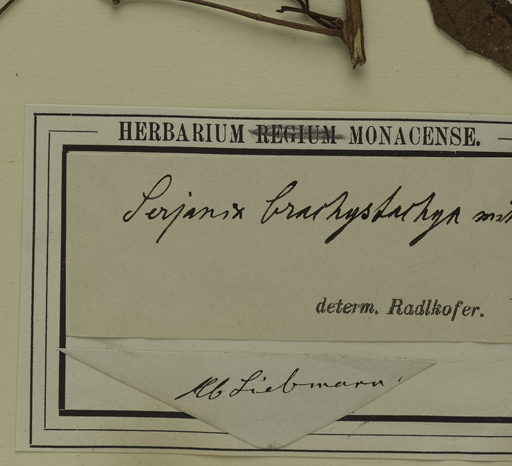 HERBARIUM REGIUM MONACENSE.
Serjania brachystachya
determ. Radlkofer.
Hb Liebmann